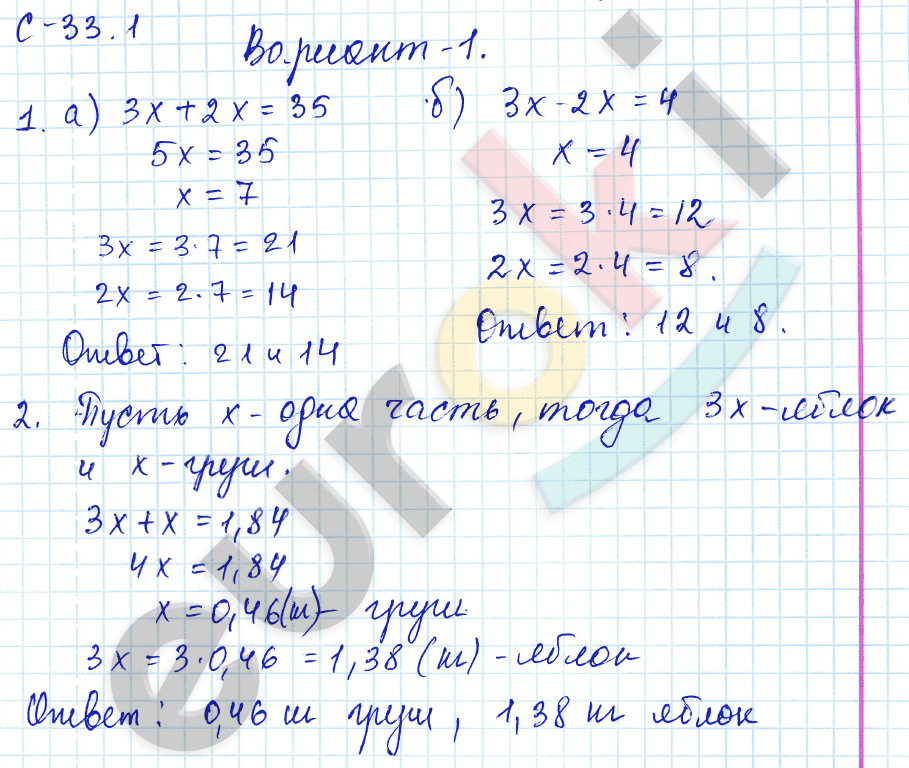 С-33.1
Вариант-1.
1. а) 3x + 2x = 35
5x = 35
x = 7
3x = 3·7 = 21
2x = 2·7 = 14
Ответ: 21 и 14
б) 3x - 2x = 4
x = 4
3x = 3·4 = 12
2x = 2·4 = 8.
Ответ: 12 и 8.
2. Пусть x - одна часть, тогда 3x - яблок
и x - груш.
3x + x = 1,84
4x = 1,84
x = 0,46 (кг) - груш
3x = 3·0,46 = 1,38 (кг) - яблок
Ответ: 0,46 кг груш, 1,38 кг яблок
euroki